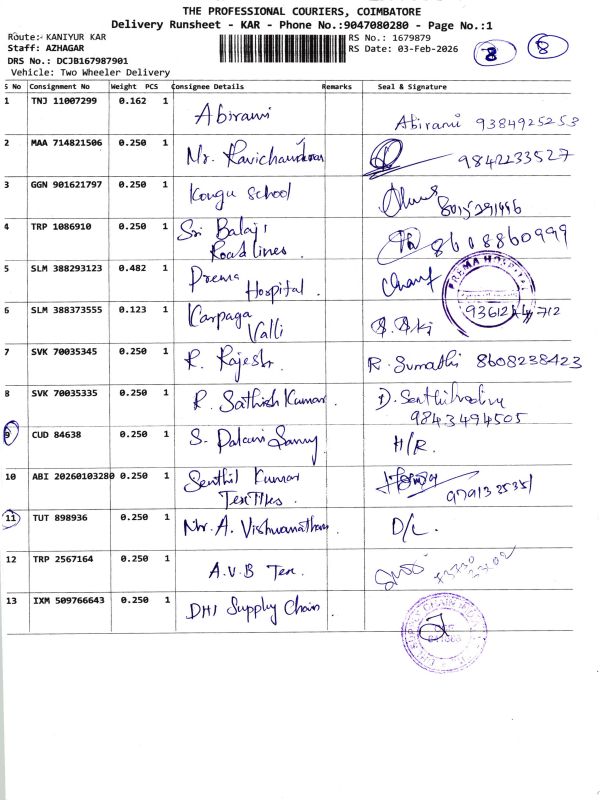 THE PROFESSIONAL COURIERS, COIMBATORE
Delivery Runsheet - KAR - Phone No.:9047080280 - Page No.:1
Route:- KANIYUR KAR
RS No.: 1679879
Staff: AZHAGAR
RS Date: 03-Feb-2026
8 8
DRS No.: DCJB167987901
Vehicle: Two Wheeler Delivery
S No Consignment No Weight PCS Consignee Details Remarks Seal & Signature
1 TNJ 11007299 0.162 1 Abirami Abirami 9384925253
2 MAA 714821506 0.250 1 Mr. Ravichandran 9842233527
3 GGN 901621797 0.250 1 Kongu School
4 TRP 1086910 0.250 1 Sri Balaji
Roadlines 8608860999
5 SLM 388293123 0.482 1 Prema
Hospital. PREMA HOSPITAL
6 SLM 388373555 0.123 1 Karpaga
Valli
7 SVK 70035345 0.250 1 R. Rajesh. R. Sumathi 8608238423
8 SVK 70035335 0.250 1 R. Sathish Kumar.
9843494505
9 CUD 84638 0.250 1 S. Palani Samy H/R.
10 ABI 20260103280 0.250 1 Senthil Kumar
Textiles.
11 TUT 898936 0.250 1 Mr. A. Vishwanathan D/L.
12 TRP 2567164 0.250 1 A.V.B Tex.
13 IXM 509766643 0.250 1 DHL Supply Chain